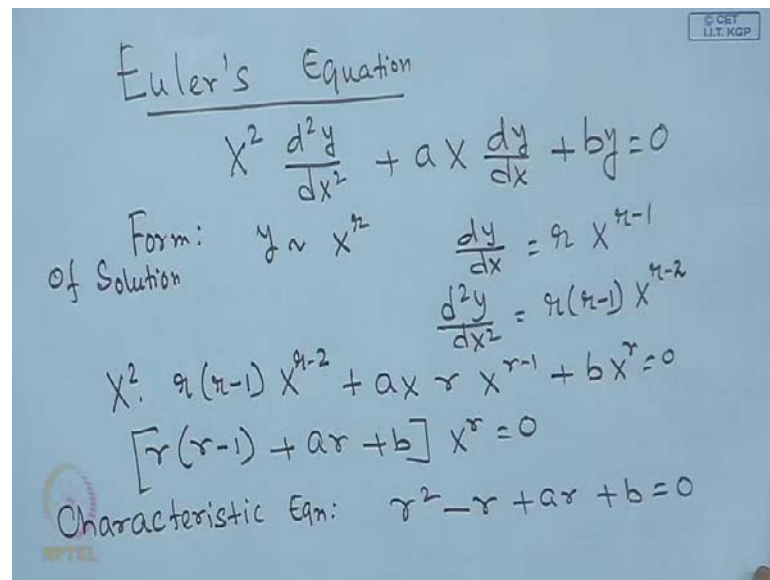 © CET
I.I.T. KGP
Euler's Equation
X² d²y/dx² + a X dy/dx + by = 0
Form: y ~ X^r dy/dx = r X^(r-1)
Of Solution
d²y/dx² = r(r-1) X^(r-2)
X². r(r-1) X^(r-2) + a x r X^(r-1) + b X^r = 0
[r(r-1) + ar + b] X^r = 0
Characteristic Eqn: r² - r + ar + b = 0
NPTEL